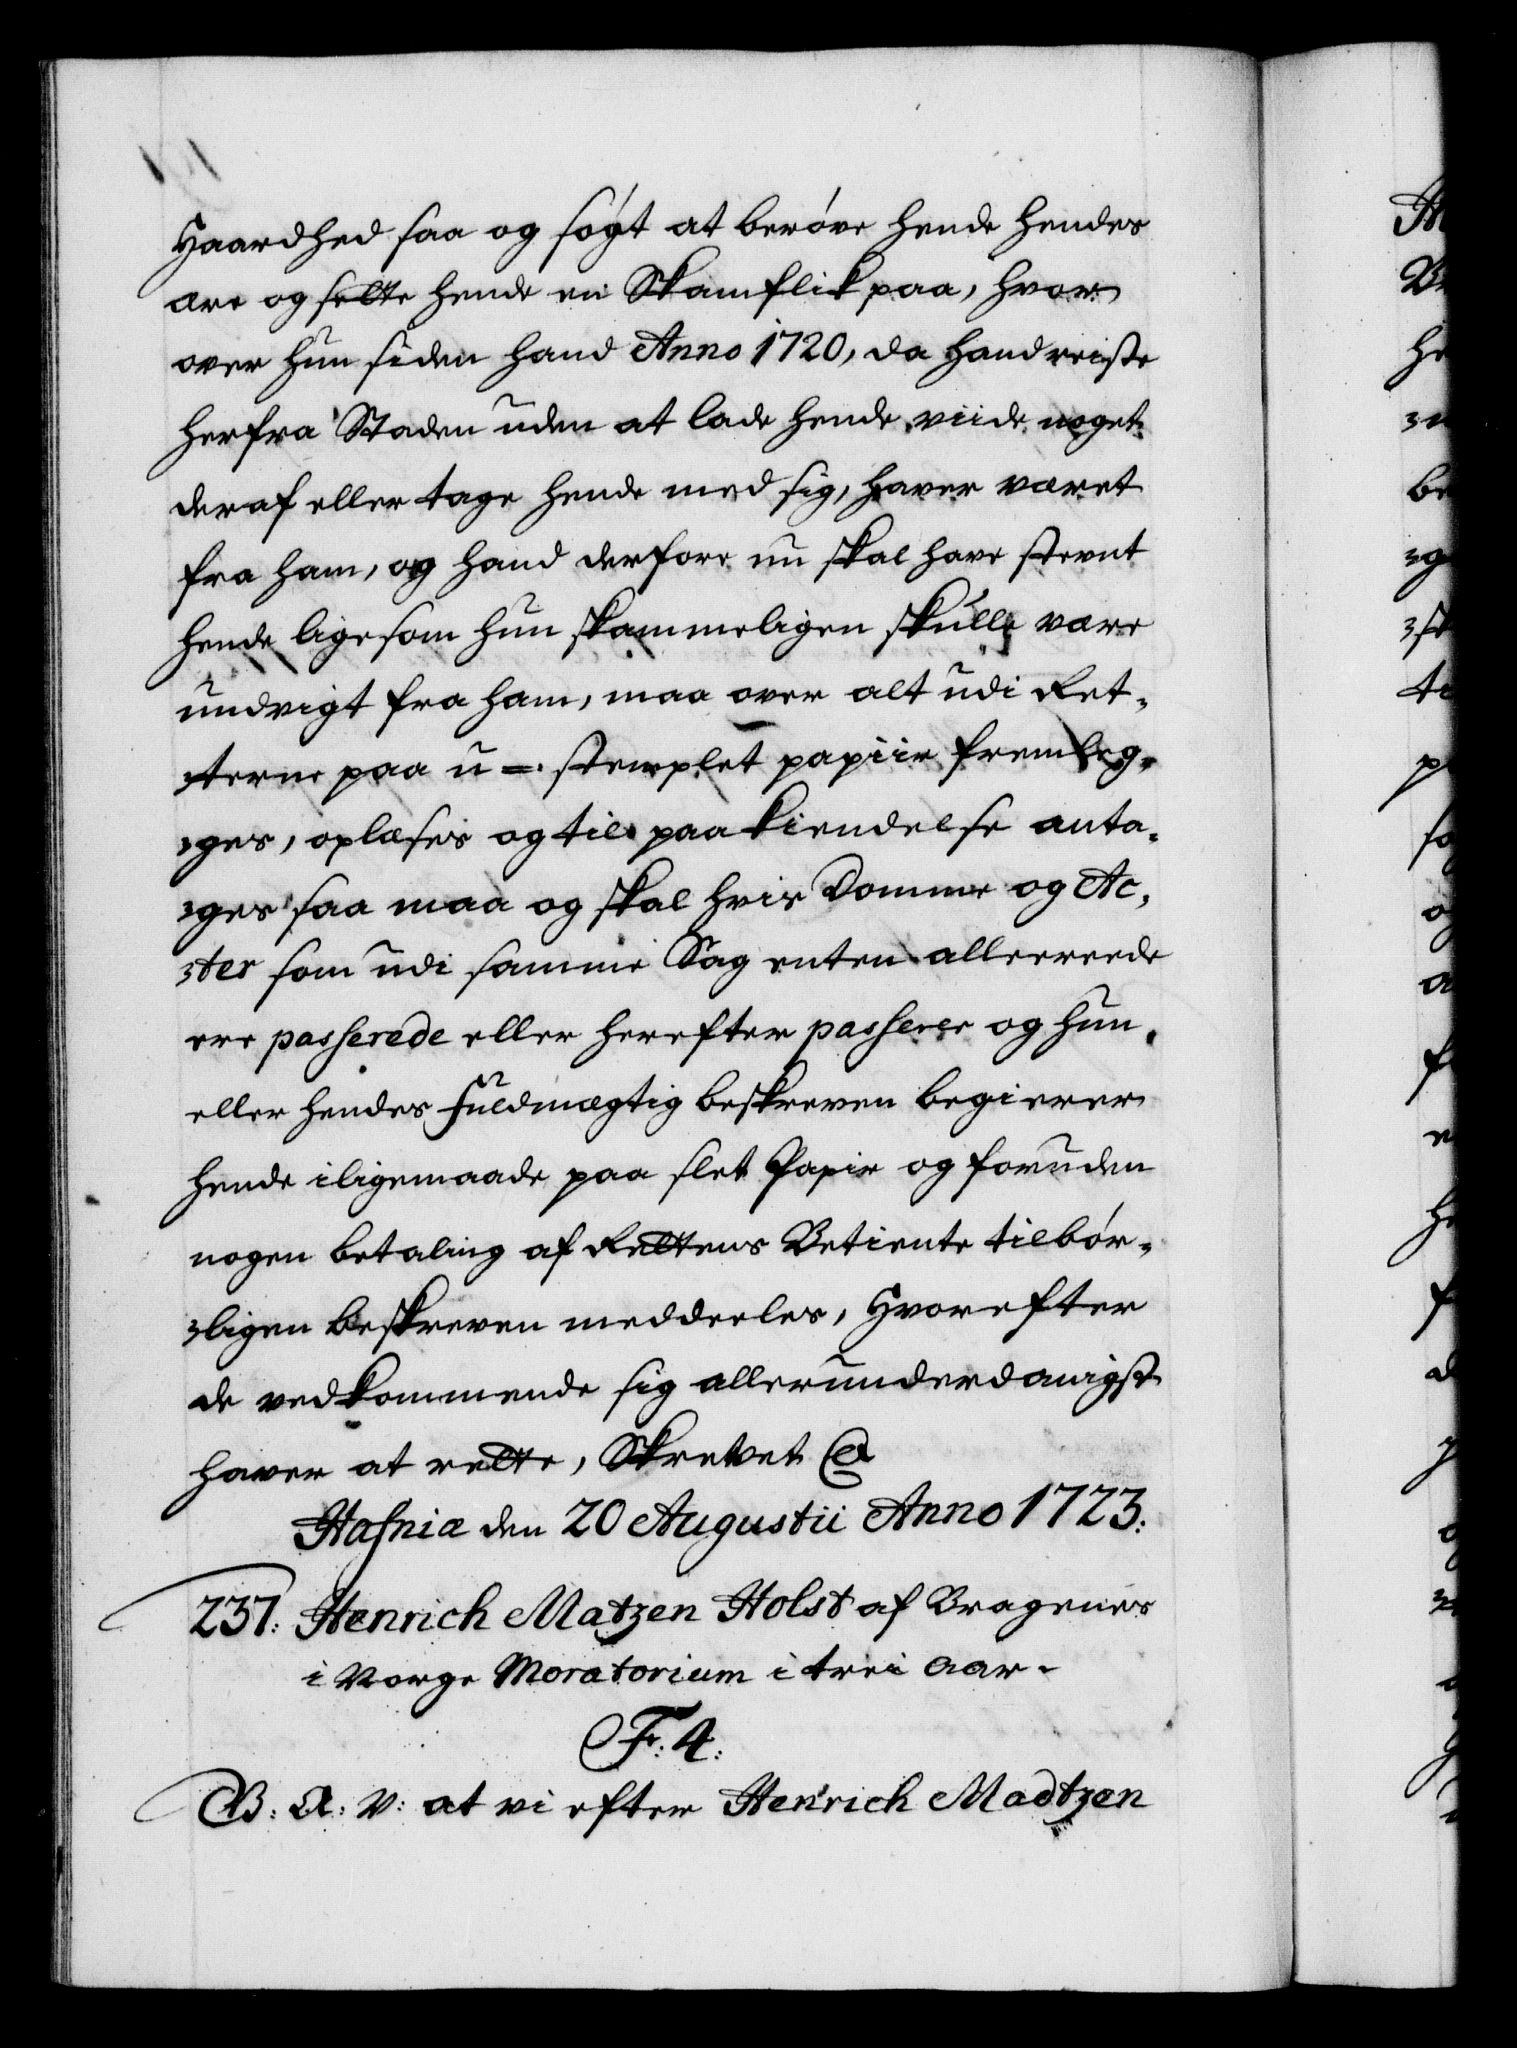 Haardhed saa og søgt at berøve hende hendes
ære og sette hende en Skamflik paa, hvor
over hun siden hand Anno 1720, da hand reiste
herfra Staden uden at lade hende viide noget
deraf eller tage hende med sig, haver været
fra ham, og hand derfore nu skal have stevnt
hende ligesom hun skammeligen skulle være
undvigt fra ham, maa over alt udi Ret-
terne paa u=stemplet papiir fremleg-
ges, oplæses og til paakiendelse anta-
ges saa maa og skal hvis Domme og Ac-
ter som udi samme Sag enten allereede
ere passerede eller herefter passerer og hun
eller hendes Fuldmægtig beskreven begierer
hende iligemaade paa slet Papir og foruden
nogen betaling af Rettens Betiente tilbør-
ligen beskreven meddeeles, Hvorefter
de vedkommende sig allerunderdanigst
haver at rette, Skrevet @
Hafniæ den 20 Augustii Anno 1723:
237: Henrich Matzen Holst af Bragenes
i Norge Moratorium i trei Aar.
Fr: 4:
G: A: V: at vi efter Henrich Madtzen